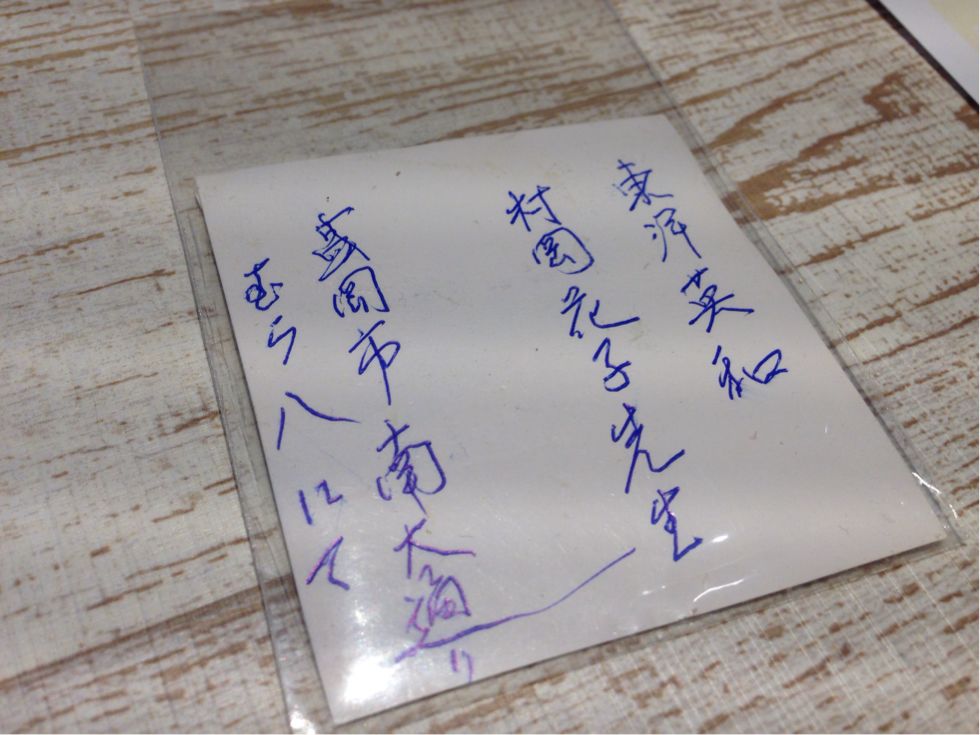 東洋英和
村岡花子先生
盛岡市南大通り
むら八にて